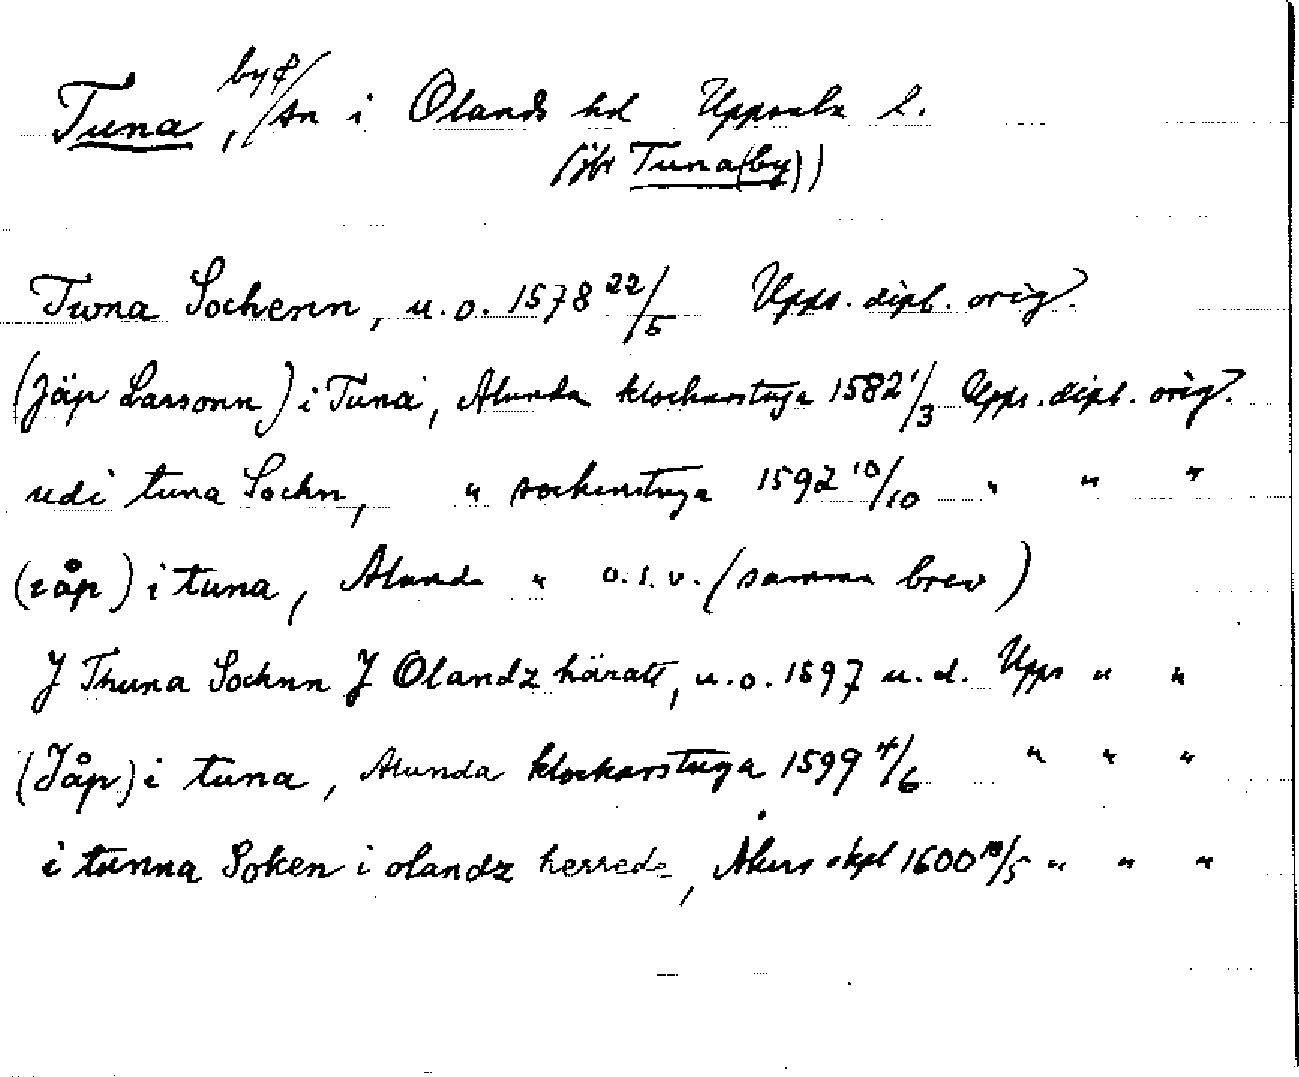 Tuna, by o/sn i Olands hd Uppsala l.
(jfr Tuna(by))
Twna Sochenn, u.o. 1578 22/5 Upps. dipl. orig.
(Jäp Larsonn) i Tuna, Alunda klockarstuga 1582 1/3 Upps. dipl. orig.
udi tuna Sochn, " sockenstuga 1592 10/10 " " "
(råp) i tuna, Alunda " o.s.v. (samma brev)
J Thuna Sochnn J Olandz häratt, u.o. 1597 u.d. Upps " "
(Jåp) i tuna, Alunda klockarstuga 1599 4/6 " " "
i tunna Soken i olandz herrede, skpl 1600 18/5 " " "